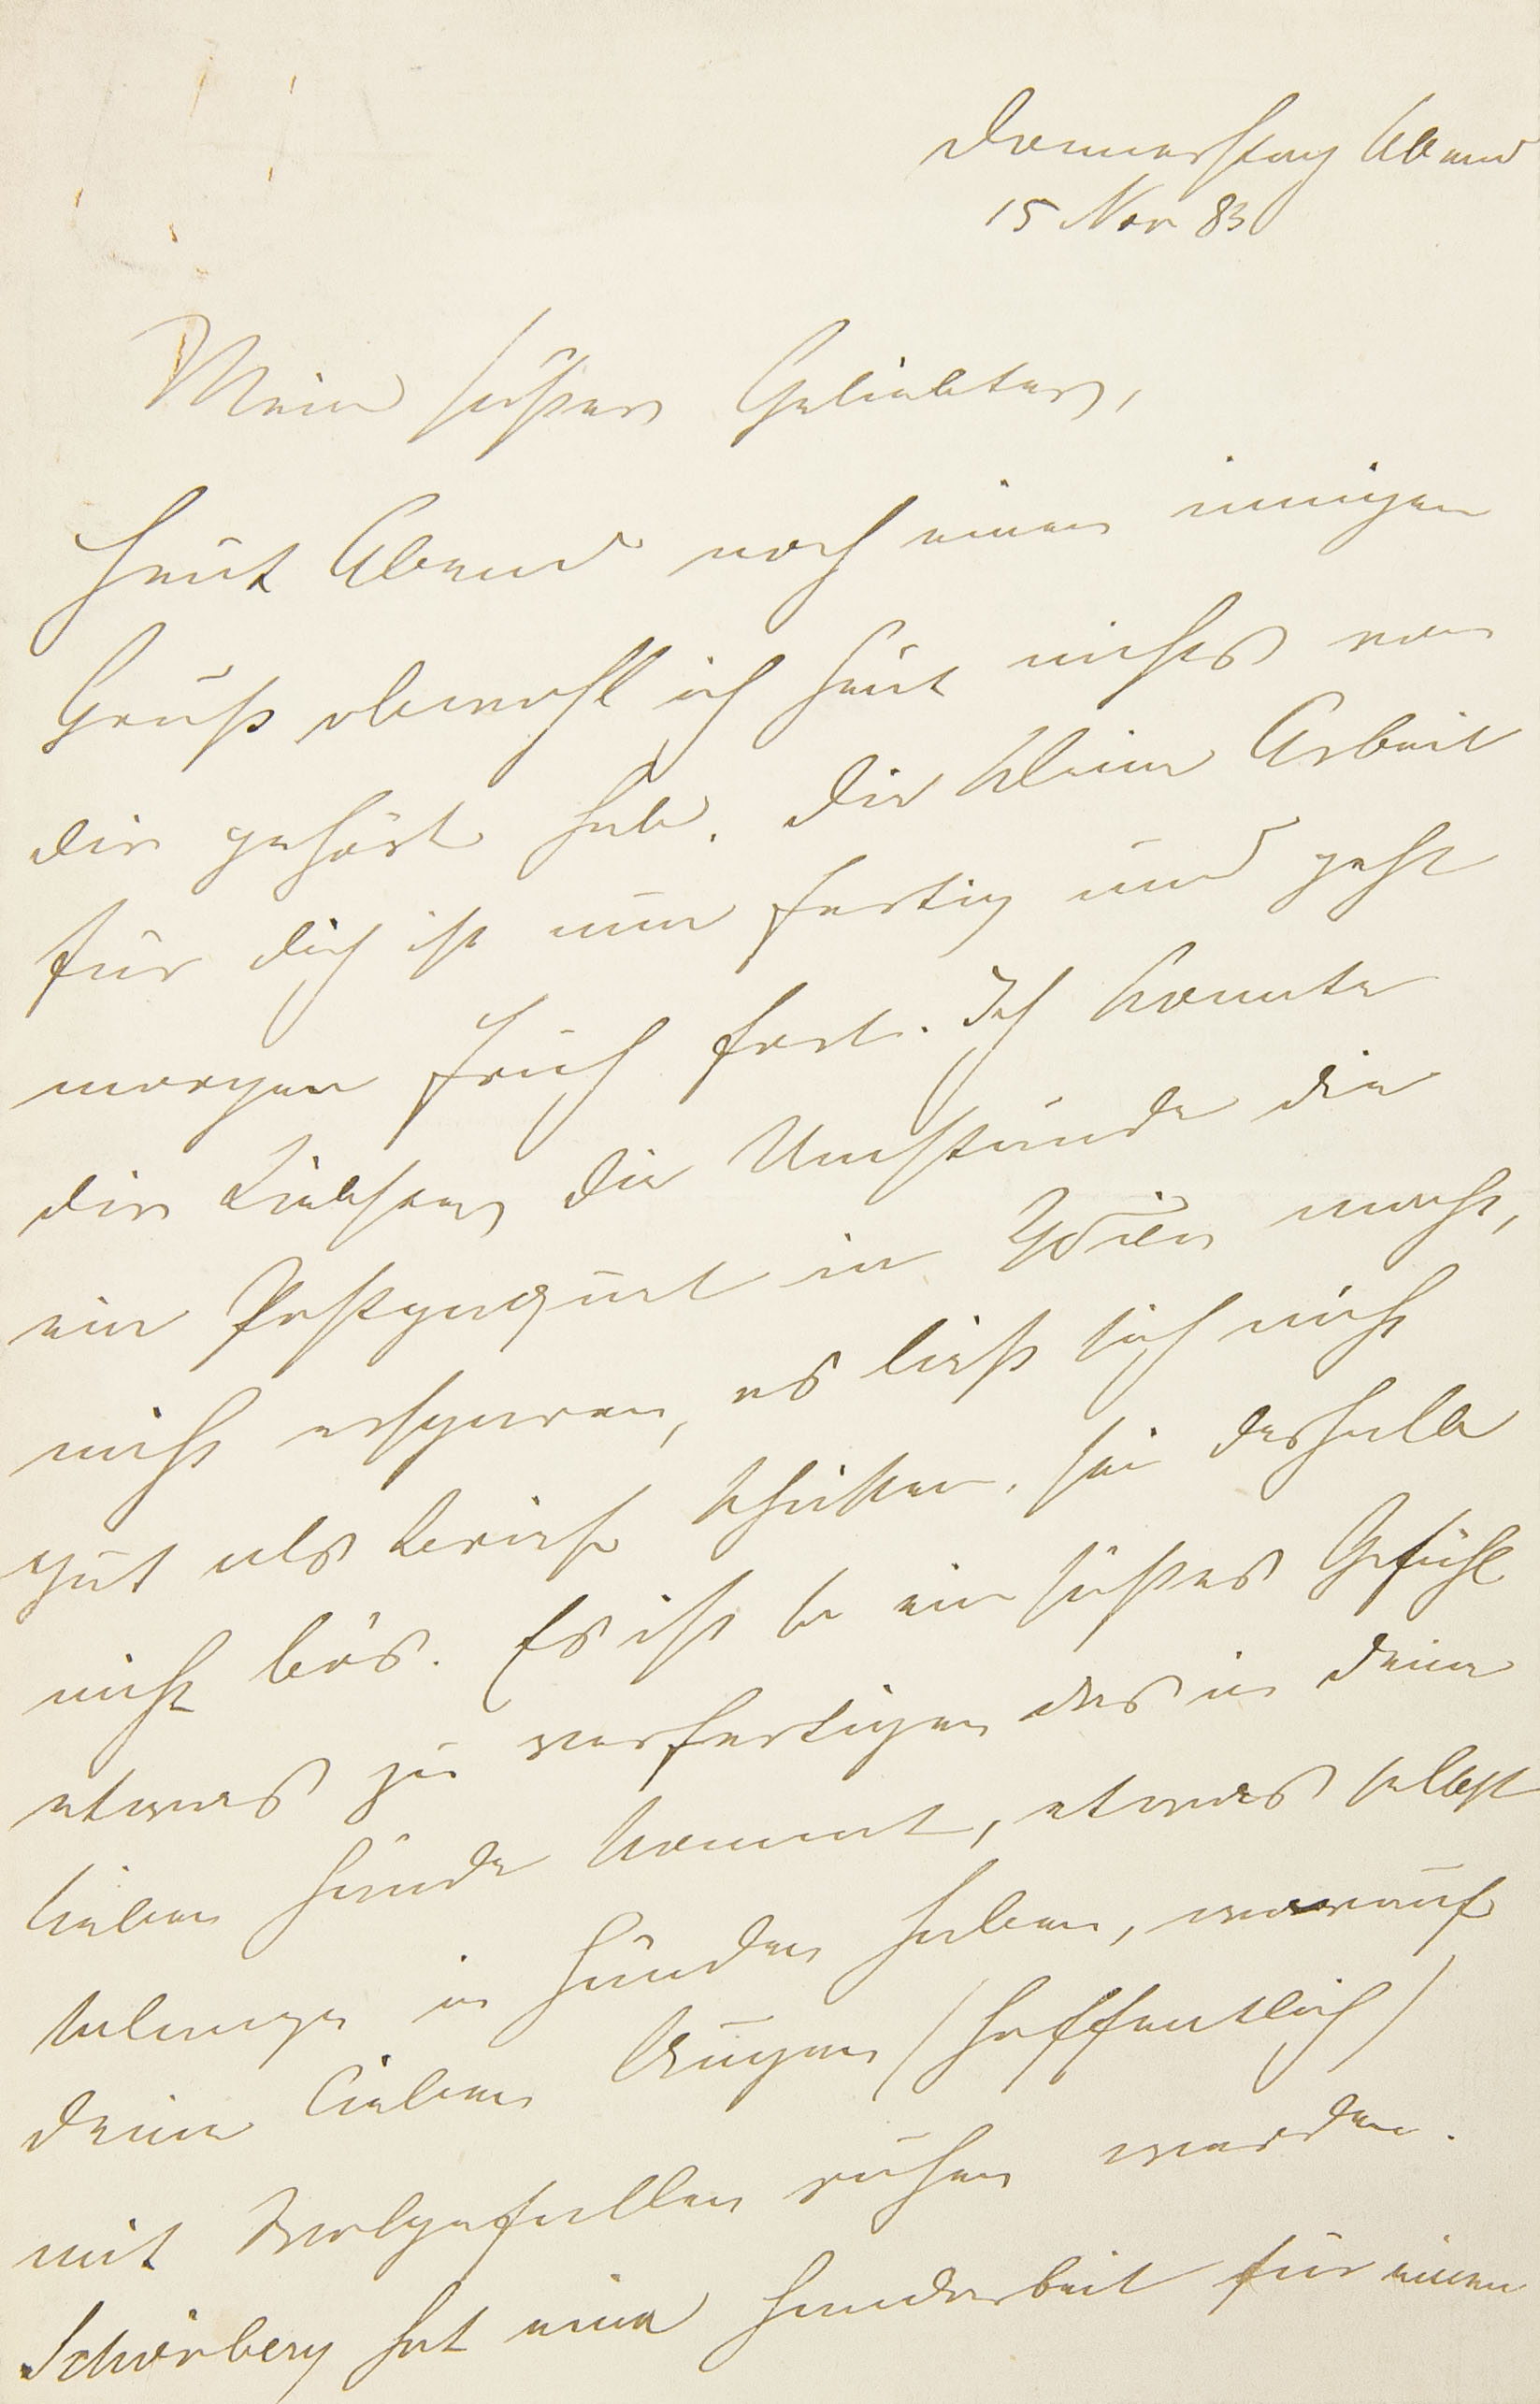 Donnerstag Abend
15 Nov 83
Mein süßer Geliebter,
Heut Abend noch einen innigen
Gruß obwohl ich heut nichts von
dir gehört habe. Die kleine Arbeit
für dich ist nun fertig und geht
morgen früh fort. Ich konnte
dir Liebster die Umstände die
ein Postpaquet in Wien macht,
nicht ersparen, es ließ sich nicht
gut als Brief schicken, sei deshalb
nicht bös. Es ist so ein süßes Gefühl
etwas zu verfertigen das in deine
lieben Hände kommt, etwas selbst
solange in Händen haben, worauf
deine lieben Augen (hoffentlich)
mit Wolgefallen ruhen werden.
Schönberg hat eine Handarbeit für einen